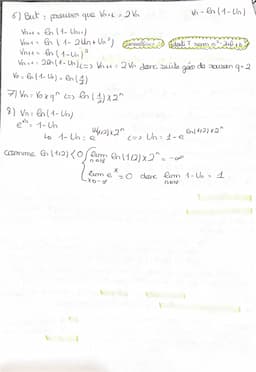 6) But : prouver que Vn+1 = 2Vn
Vn = ln(1-Un)
Vn+1 = ln(1-Un+1)
Vn+1 = ln(1-2Un+Un²)
Vn+1 = ln(1-Un)²
Vn+1 = 2ln(1-Un) <=> Vn+1 = 2Vn donc suite géo de raison q=2
V0 = ln(1-U0) = ln(1/2)
7) Vn = V0 x qⁿ <=> ln(1/2) x 2ⁿ
8) Vn = ln(1-Un)
e^Vn = 1-Un
↳ 1-Un = e^ln(1/2)x2ⁿ <=> Un = 1-e^ln(1/2)x2ⁿ
comme ln(1/2) < 0 lim ln(1/2) x 2ⁿ = -∞
lim eˣ = 0 donc lim 1-Un = 1